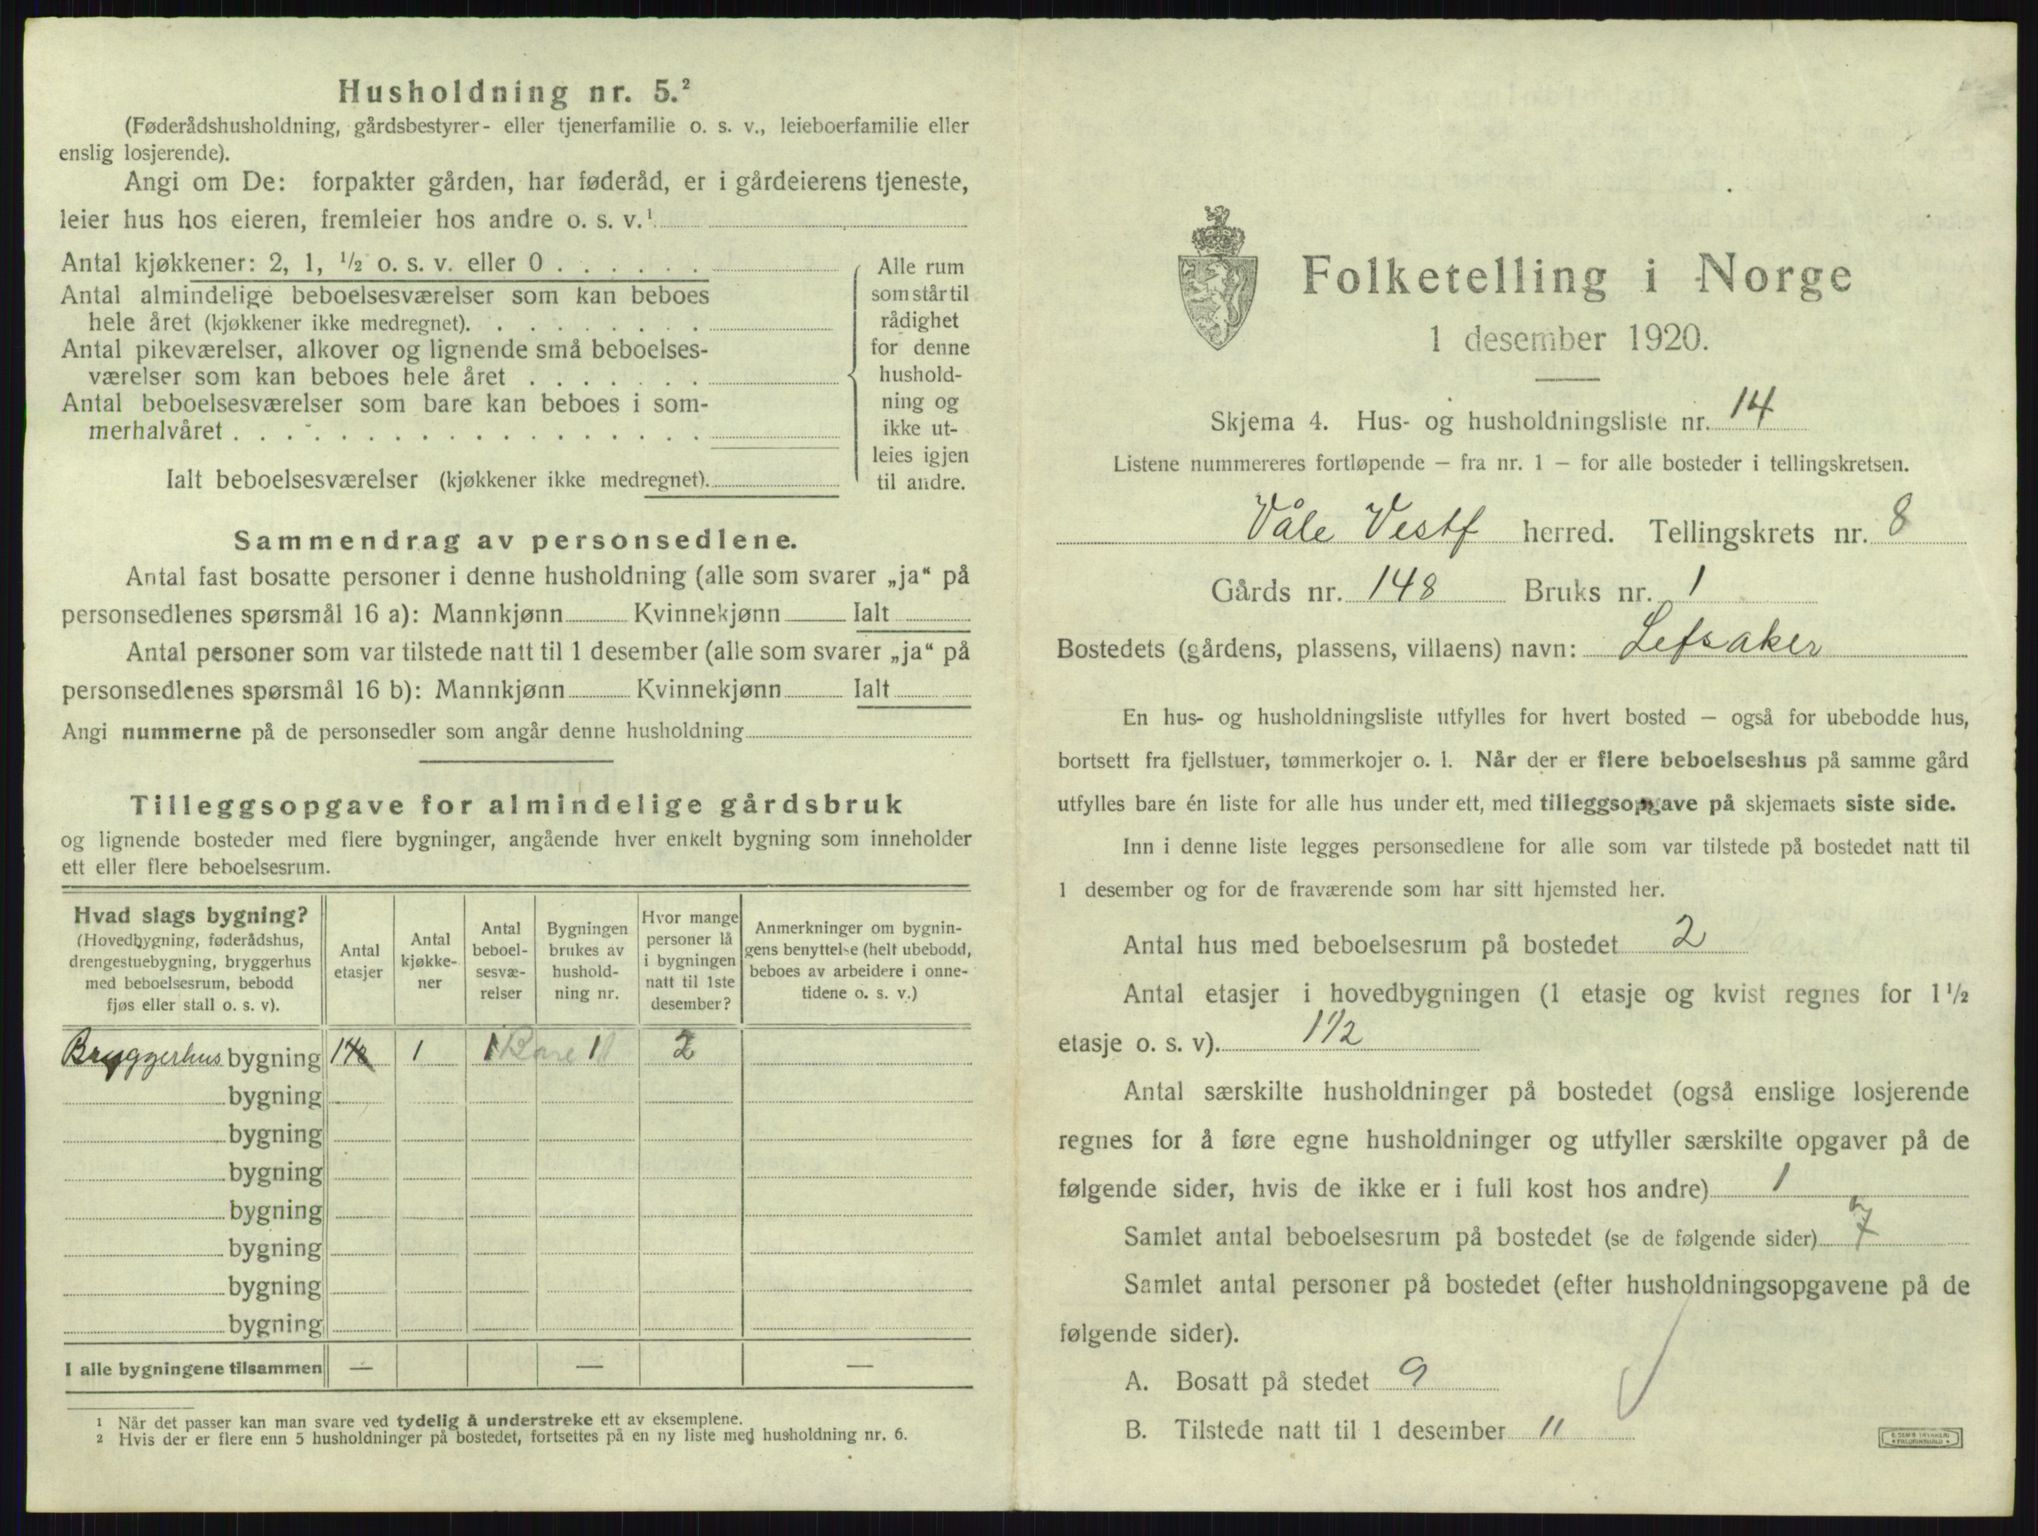 Husholdning nr. 5.²
(Føderådshusholdning, gårdsbestyrer- eller tjenerfamilie o. s. v., leieboerfamilie eller
enslig losjerende).
Angi om De: forpakter gården, har føderåd, er i gårdeierens tjeneste,
leier hus hos eieren, fremleier hos andre o. s. v.¹
Antal kjøkkener: 2, 1, ½ o. s. v. eller 0 . . . . . .
Antal almindelige beboelsesværelser som kan beboes
hele året (kjøkkener ikke medregnet). . . . . . . . .
Antal pikeværelser, alkover og lignende små beboelses-
værelser som kan beboes hele året . . . . . . .
Antal beboelsesværelser som bare kan beboes i som-
merhalvåret . . . . . . . . . . . . . . . . . .
Alle rum
som står til
rådighet
for denne
hushold-
ning og
ikke ut-
leies igjen
til andre.
Ialt beboelsesværelser (kjøkkener ikke medregnet).
Sammendrag av personsedlene.
Antal fast bosatte personer i denne husholdning (alle som svarer „ja“ på
personsedlenes spørsmål 16 a): Mannkjønn Kvinnekjønn Ialt
Antal personer som var tilstede natt til 1 desember (alle som svarer „ja“ på
personsedlenes spørsmål 16 b): Mannkjønn Kvinnekjønn Ialt
Angi nummerne på de personsedler som angår denne husholdning
Tilleggsopgave for almindelige gårdsbruk
og lignende bosteder med flere bygninger, angående hver enkelt bygning som inneholder
ett eller flere beboelsesrum.
Hvad slags bygning?
(Hovedbygning, føderådshus,
drengestuebygning, bryggerhus
med beboelsesrum, bebodd
fjøs eller stall o. s. v).
Antal
etasjer
Antal
kjøkke-
ner
Antal
beboel-
sesvæ-
relser
Bygningen
brukes av
hushold-
ning nr.
Hvor mange
personer lå
i bygningen
natt til 1ste
desember?
Anmerkninger om bygnin-
gens benyttelse (helt ubebodd,
beboes av arbeidere i onne-
tidene o. s. v.)
Bryggerhus bygning 1½ 1 1 1 2
bygning
bygning
bygning
bygning
bygning
bygning
bygning
I alle bygningene tilsammen — — —
¹ Når det passer kan man svare ved tydelig å understreke ett av eksemplene.
² Hvis der er flere enn 5 husholdninger på bostedet, fortsettes på en ny liste med husholdning nr. 6.
Folketelling i Norge
1 desember 1920.
Skjema 4. Hus- og husholdningsliste nr. 14
Listene nummereres fortløpende – fra nr. 1 – for alle bosteder i tellingskretsen.
Våle Vestf herred. Tellingskrets nr. 8
Gårds nr. 148 Bruks nr. 1
Bostedets (gårdens, plassens, villaens) navn: Lefsaker
En hus- og husholdningsliste utfylles for hvert bosted – også for ubebodde hus,
bortsett fra fjellstuer, tømmerkojer o. l. Når der er flere beboelseshus på samme gård
utfylles bare én liste for alle hus under ett, med tilleggsopgave på skjemaets siste side.
Inn i denne liste legges personsedlene for alle som var tilstede på bostedet natt til
1 desember og for de fraværende som har sitt hjemsted her.
Antal hus med beboelsesrum på bostedet 2
Antal etasjer i hovedbygningen (1 etasje og kvist regnes for 1½
etasje o. s. v). 1½
Antal særskilte husholdninger på bostedet (også enslige losjerende
regnes for å føre egne husholdninger og utfyller særskilte opgaver på de
følgende sider, hvis de ikke er i full kost hos andre) 1
Samlet antal beboelsesrum på bostedet (se de følgende sider) 7
Samlet antal personer på bostedet (efter husholdningsopgavene på de
følgende sider).
A. Bosatt på stedet 9
B. Tilstede natt til 1 desember 11